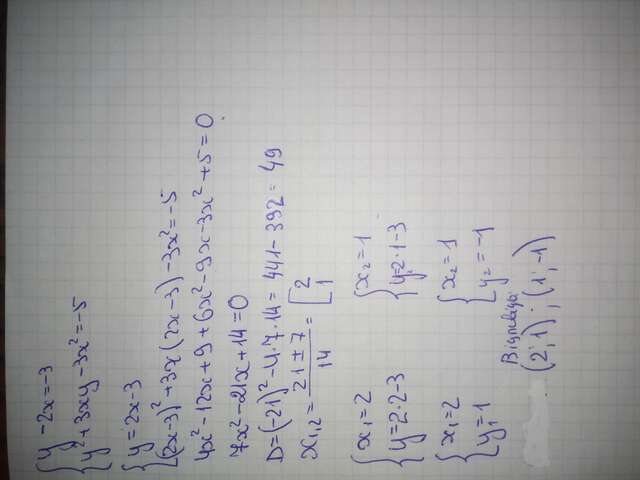 {y-2x=-3
{y²+3xy-3x²=-5
{y=2x-3
{(2x-3)²+3x(2x-3)-3x²=-5
4x²-12x+9+6x²-9x-3x²+5=0
7x²-21x+14=0
D=(-21)²-4·7·14=441-392=49
x₁,₂=(21±7)/14=[2 1
{x₁=2 {x₂=1
{y=2·2-3 {y₂=2·1-3
{x₁=2 {x₂=1
{y₁=1 {y₂=-1
Відповідь:
(2;1);(1;-1)